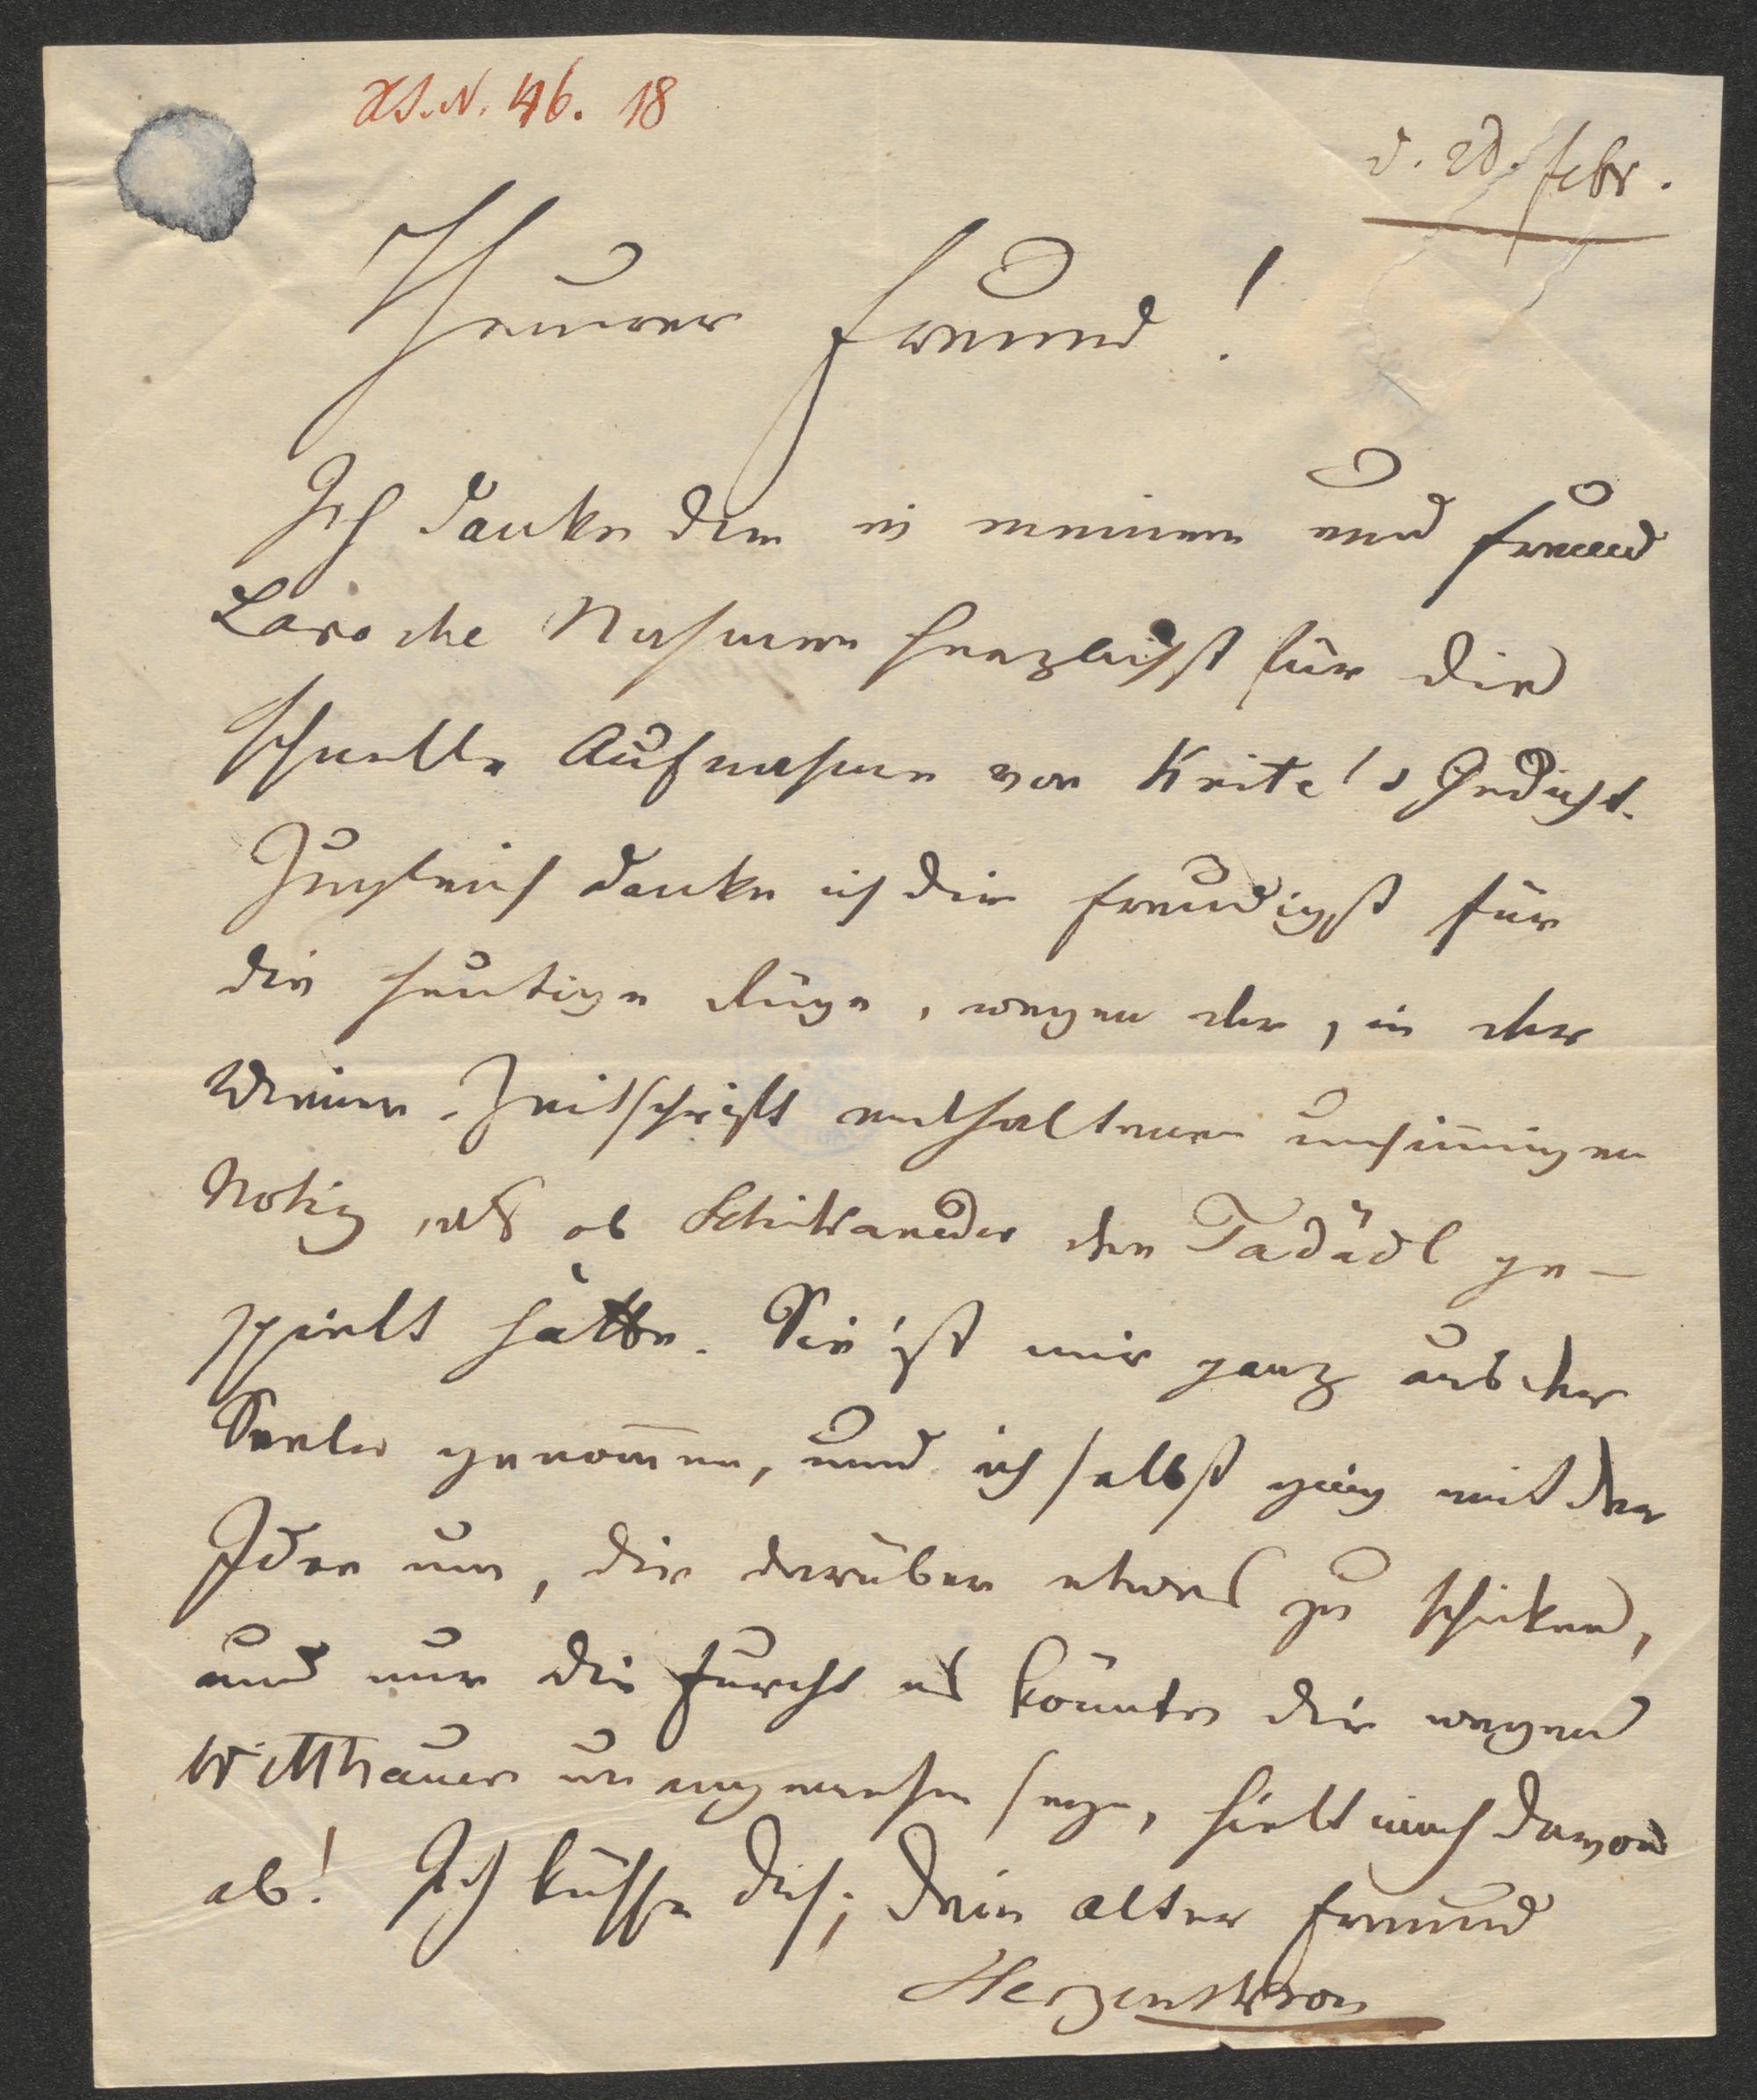 H.I.N. 46. 18
d. 28. Febr.
Theurer Freund!
Ich danke dir in meinem und Freund
Laroche Nahmen herzlichst für die
schnelle Aufnahme von Keite's Gedicht.
Zugleich danke ich dir freudigst für
die heutige Rüge, wegen der, in der
Wiener-Zeitschrift enthaltenen unsinnigen
Notiz, als ob Schikaneder den Tadädl ge-
spielt hätte. Sie ist mir ganz aus der
Seele genom̅en, und ich selbst ging mit der
Idee um, dir darüber etwas zu schicken,
und nur die Furcht es könnte dir wegen
Witthauer unangenehm seyn, hielt mich davon
ab! Ich küsse dich; dein alter Freund
Herzenskron